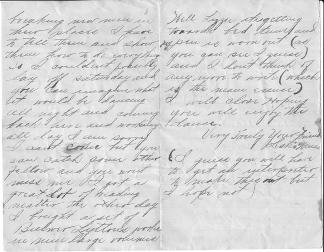 breaking new men in
their places I have
to tell them and show
them how to do everything
So I couldn't possibly
lay off Saturday and
you can imagine what
it would be dancing
all night and coming
back here and working
all day I am sorry
I can't come but you
can catch some other
fellow and you won't
miss me I got a
great lot of reading
matter the other day
I bought a set of
Bulwer Lytton's works
in nine large volumes
Well Lizzie it's getting
towards bed time and
pen is worn out (as
you can see I guess)
and I don't think of
any more to write (which
is the main cause)
I will close Hoping
you will enjoy the
dance.
Very Truly Your friend
(I guess you will have
to get an interpreter
to make this out but
I hope not)